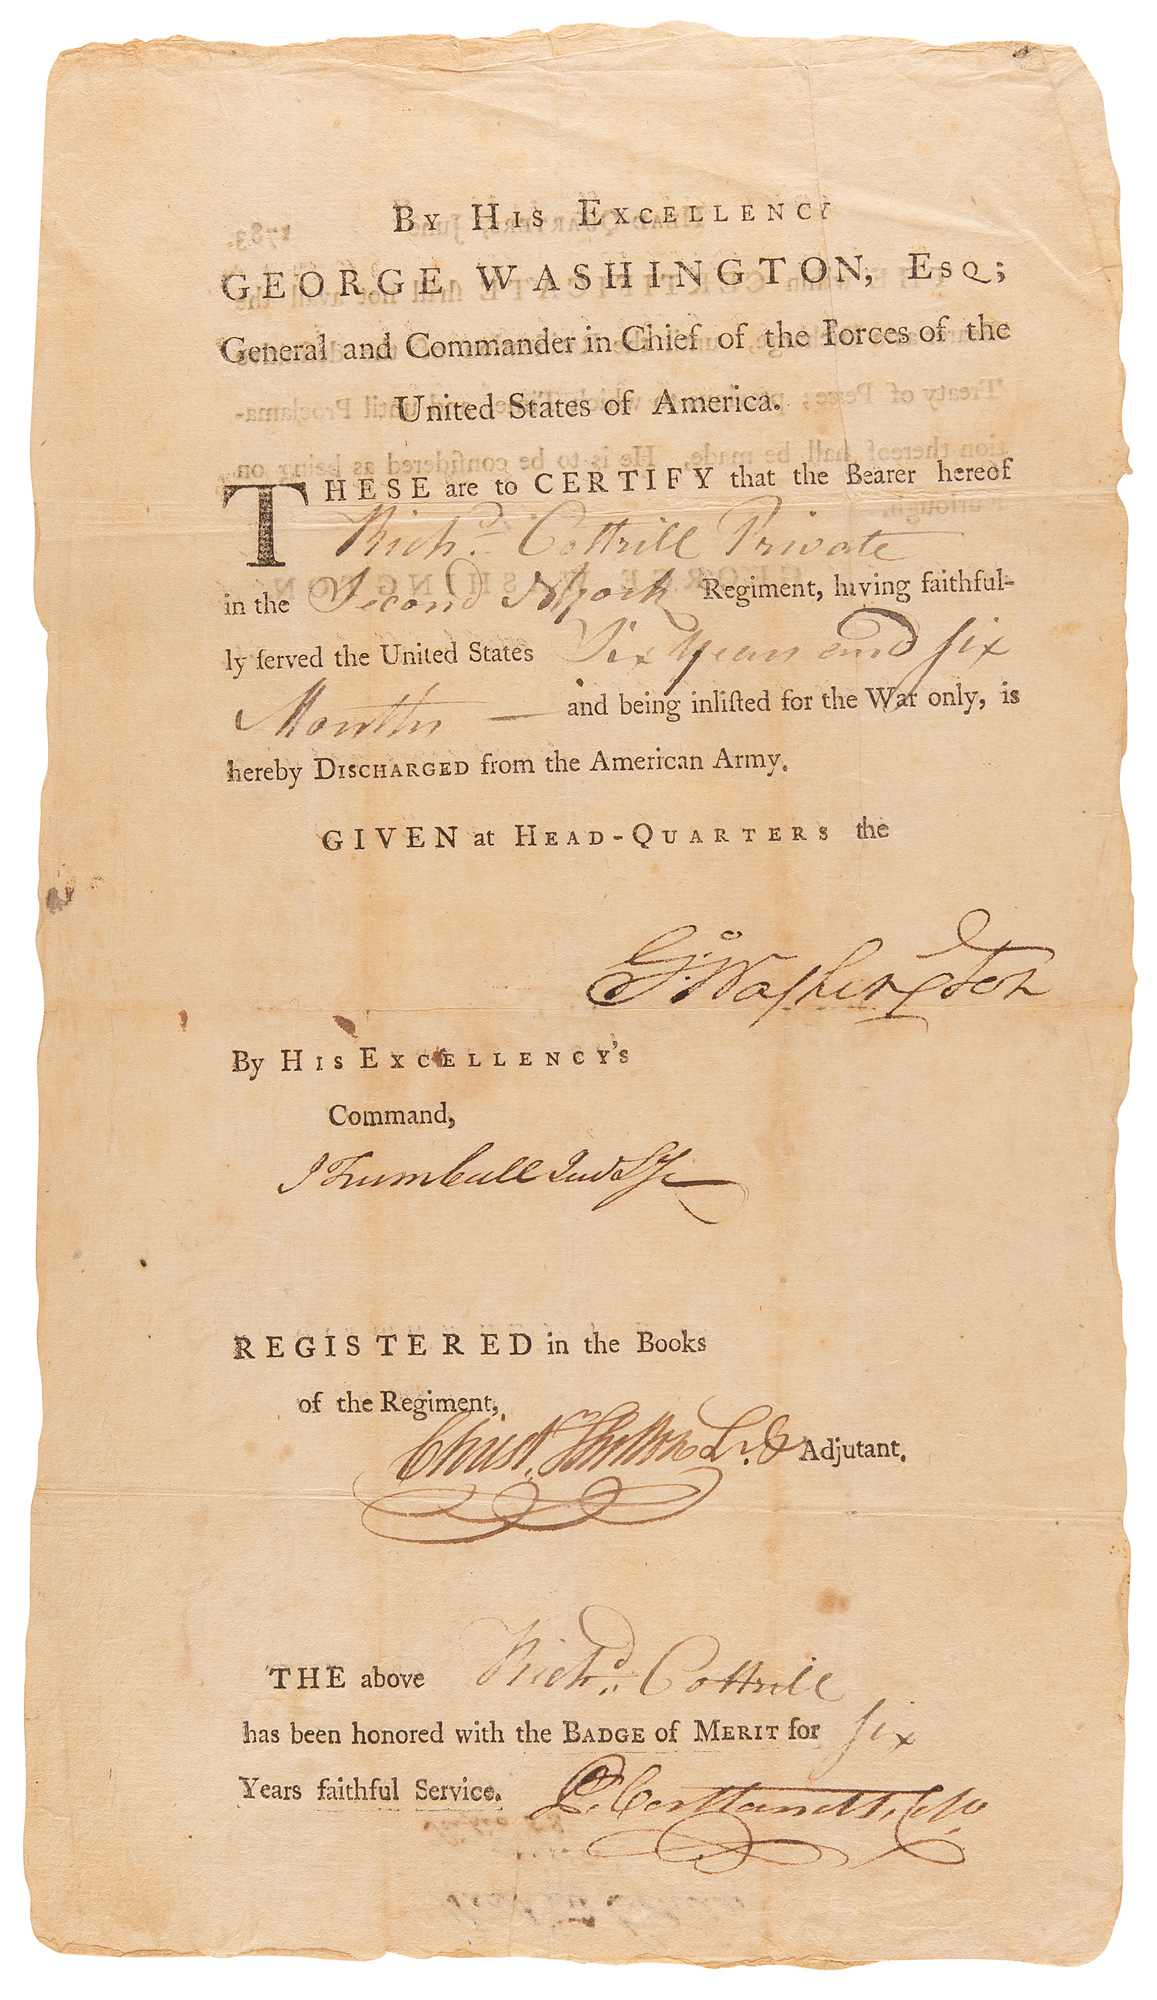 By His Excellency
GEORGE WASHINGTON, Esq;
General and Commander in Chief of the Forces of the
United States of America.
THESE are to CERTIFY that the Bearer hereof
Richd. Cottrill Private
in the Second NYork Regiment, having faithful-
ly ſerved the United States Six Years and six
Months — and being inliſted for the War only, is
hereby Discharged from the American Army.
GIVEN at Head-Quarters the
Go: Washington
By His Excellency's
Command,
J Trumbull Jun Sy
REGISTERED in the Books
of the Regiment,
Christr. Hutton Lt. & Adjutant.
THE above Richd. Cottrill
has been honored with the Badge of Merit for six
Years faithful Service. P. Cortlandt, Colo.